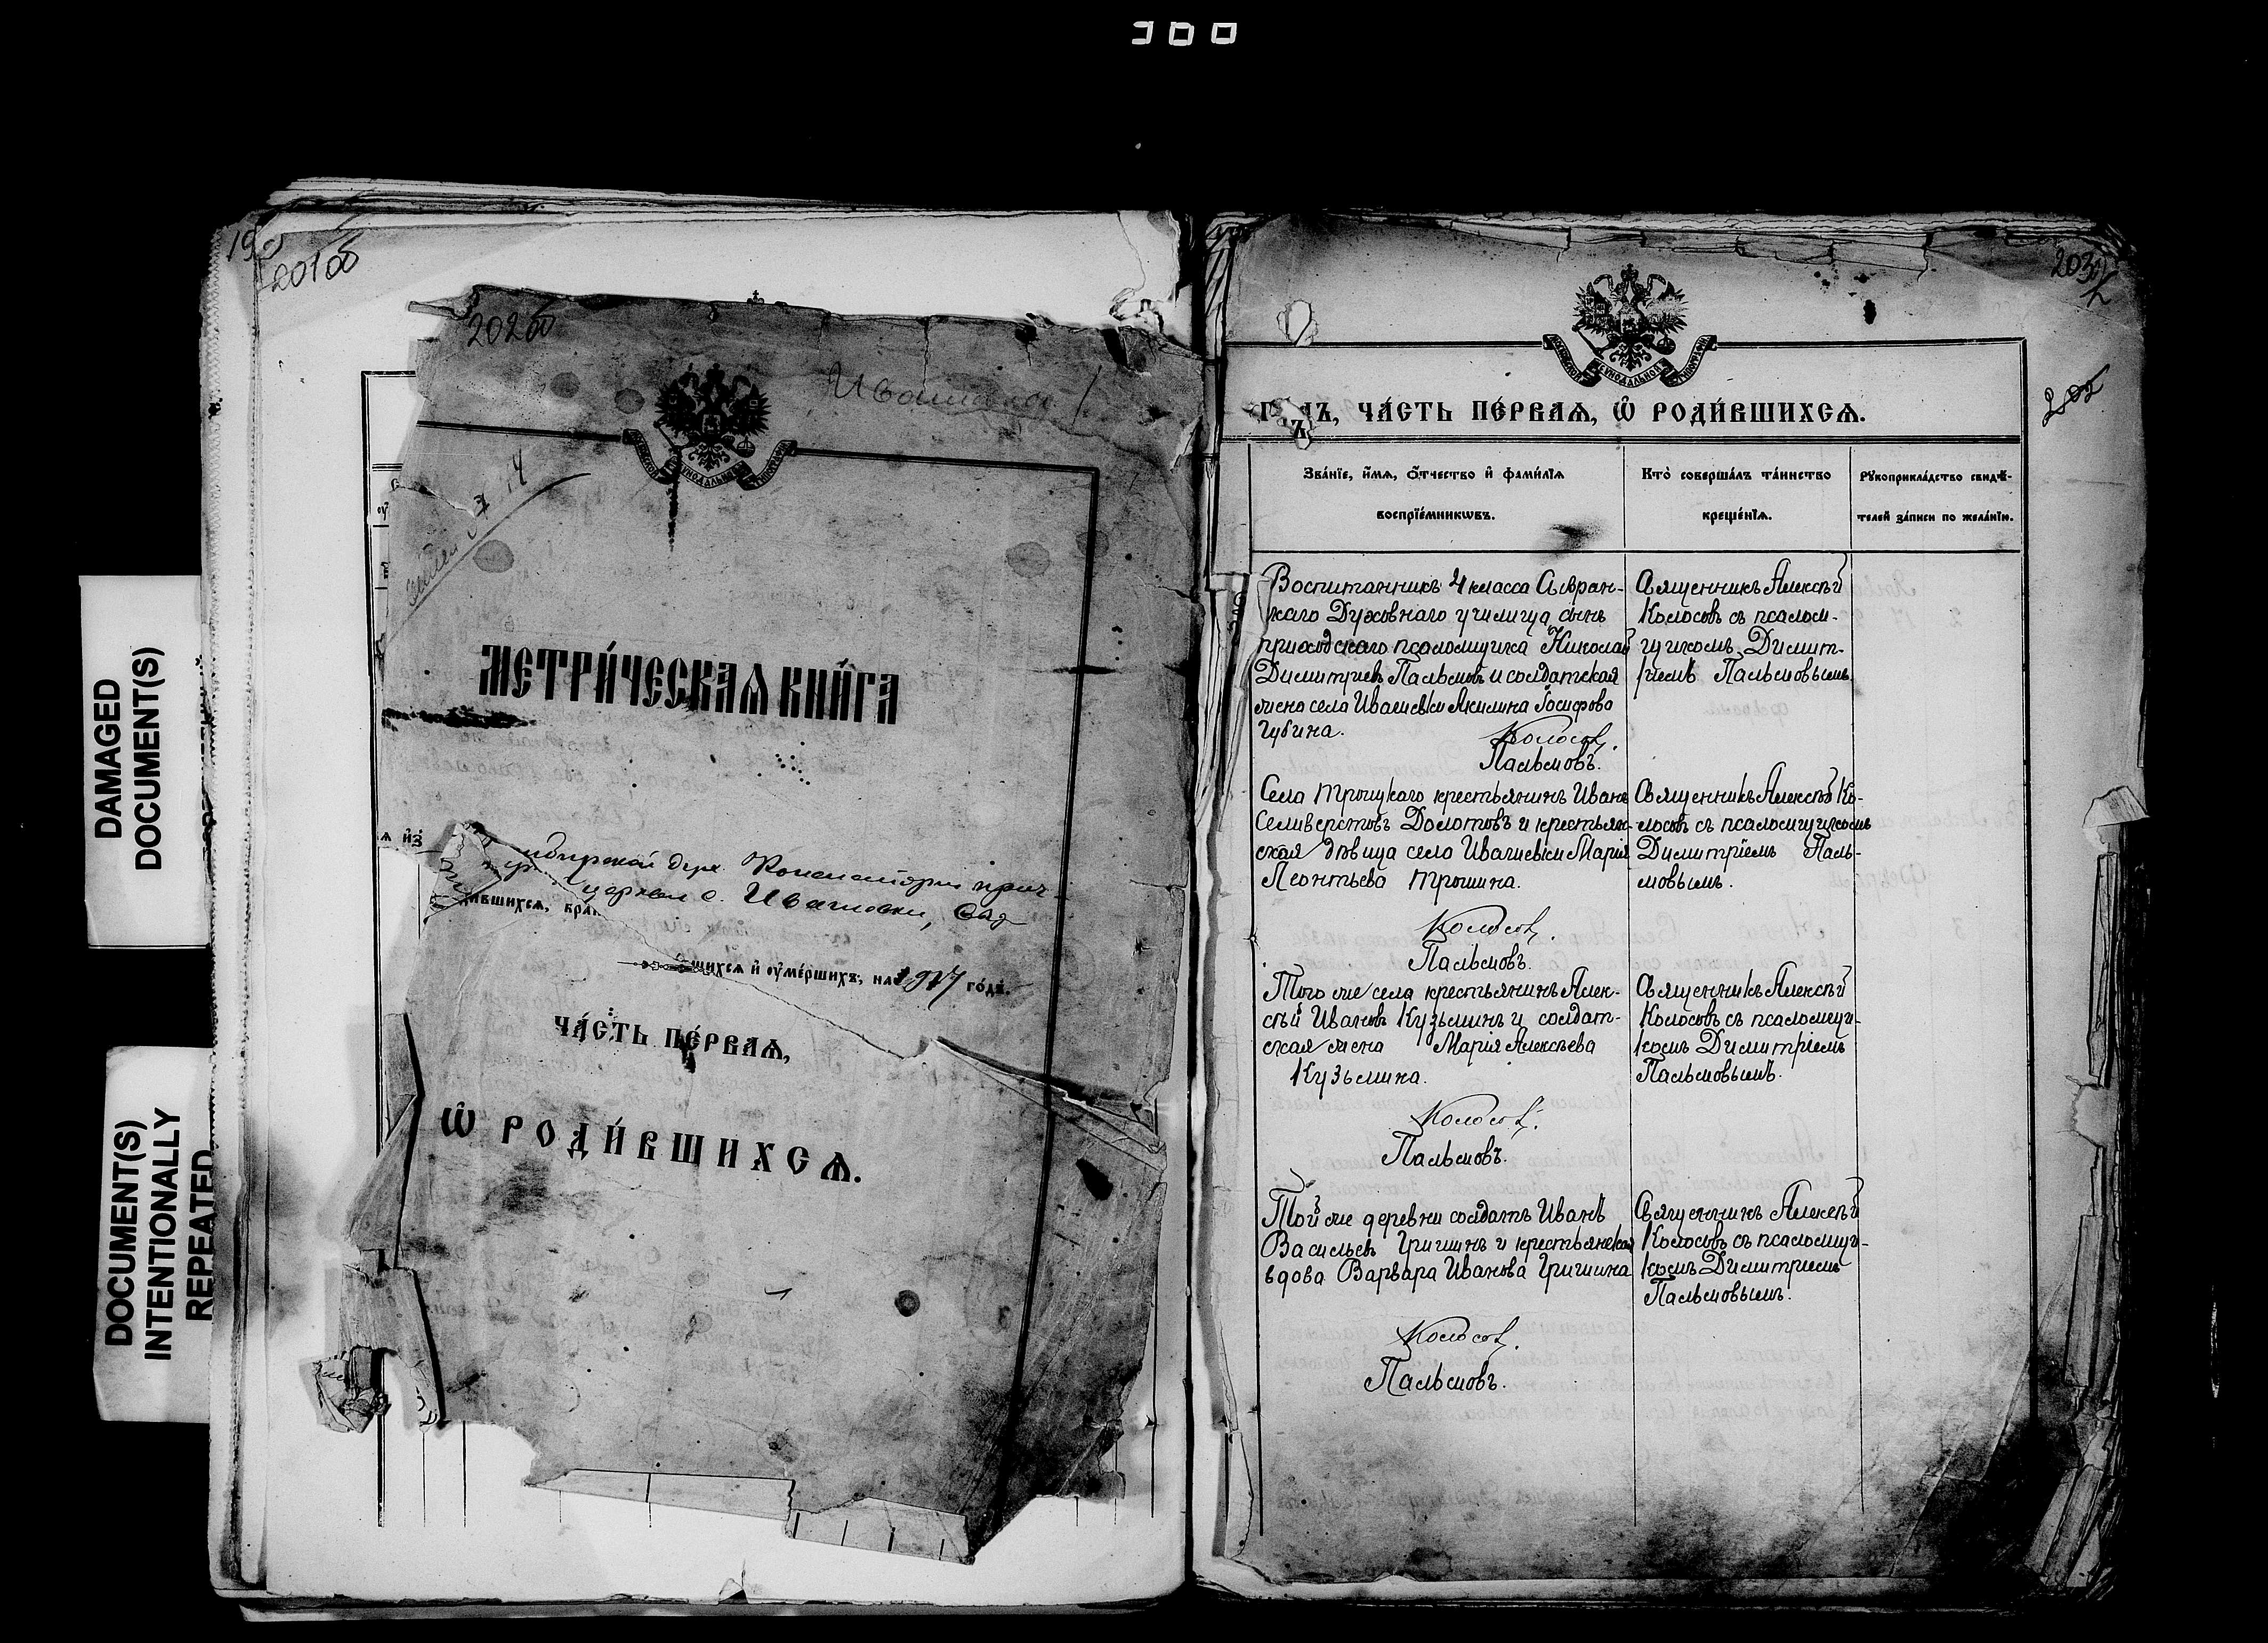 DAMAGED
DOCUMENT(S)
DOCUMENT(S)
INTENTIONALLY
REPEATED
201об
202об
Ивашевка
МЕТРИ́ЧЕСКАѦ КНИ́ГА
дух. Консисторіи прич
церкви с. Ивашевки, Сыз
на 1917 го́дъ.
ЧА́СТЬ ПЕ́РВАѦ,
Ѽ РОДИ́ВШИХСѦ.
203
202
ЧА́СТЬ ПЕ́РВАѦ, Ѽ РОДИ́ВШИХСѦ.
Зва́нїе, и҆́мѧ, ѻ҆́тчество и҆ фами́лїѧ
воспрїе́мникѡвъ.
Кто̀ соверша́лъ та́инство
креще́нїѧ.
Рꙋкоприкла́дство свидѣ́-
телей за́писи по жела́нїю.
Воспитанникъ 4 класса Сызран-
скаго Духовнаго училища сынъ
приходскаго псаломщика Николай
Димитріевъ Пальмовъ и солдатская
жена села Ивашевки Акилина Іосифова
Губина.
Колосовъ.
Пальмовъ.
Священникъ Алексѣй
Колосовъ съ псалом-
щикомъ Димит-
ріемъ Пальмовымъ
Села Троицкаго крестьянинъ Иванъ
Селиверстовъ Долотовъ и крестьян-
ская дѣвица села Ивашевки Марія
Леонтьева Трошина.
Колосовъ.
Пальмовъ.
Священникъ Алексѣй Ко-
лосовъ съ псаломщикомъ
Димитріемъ Паль-
мовымъ.
Того же села крестьянинъ Алек-
сѣй Ивановъ Кузьминъ и солдат-
ская жена Марія Алексѣева
Кузьмина.
Колосовъ.
Пальмовъ.
Священникъ Алексѣй
Колосовъ съ псаломщи-
комъ Димитріемъ
Пальмовымъ.
Той же деревни солдатъ Иванъ
Васильевъ Гришинъ и крестьянская
вдова Варвара Иванова Гришина
Колосовъ.
Пальмовъ.
Священникъ Алексѣй
Колосовъ съ псаломщи-
комъ Димитріемъ
Пальмовымъ.